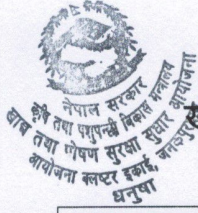 नेपाल सरकार
कृषि तथा पशुपन्छी विकास मन्त्रालय
खाद्य तथा पोषण सुरक्षा सुधार आयोजना
आयोजना क्लष्टर इकाई, जनकपुर
धनुषा